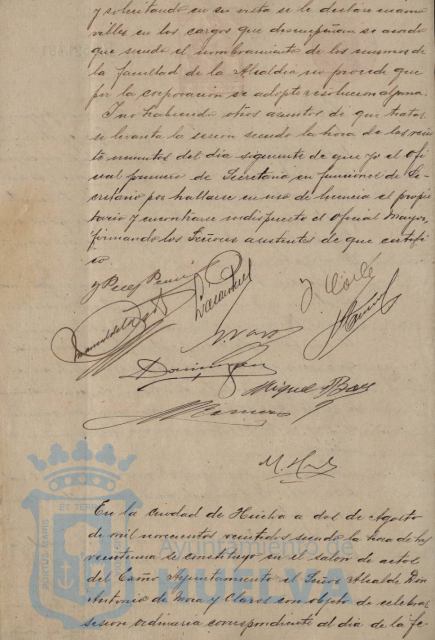 y solicitando en su vista se le declare inamo
vibles en los cargos que desempeñan se acordó
que siendo el nombramiento de los mismos de
la facultad de la Alcaldia no procede que
por la corporación se adopte resolucion alguna.
Y no habiendo otros asuntos de que tratar
se levanta la sesion siendo la hora de las vein
te minutos del dia siguiente de que yo el Ofi
cial primero de Secretaria en funciones de Se
cretario por hallarse en uso de licencia el propie
tario y encontrarse indispuesto el Oficial Mayor,
firmando los Señores asistentes de que certifi
co
Miguel Baez
En la ciudad de Huelva a dos de Agosto
de mil novecientos veintidos siendo la hora de las
veintiuna se constituyo en el salon de actos
del Excmo Ayuntamiento el Señor Alcalde Don
Antonio de Mora y Claros con objeto de celebrar
sesion ordinaria correspondiente al dia de la fe
Ayuntamiento de
HUELVA
PORTUS MARIS
ET TERRAE